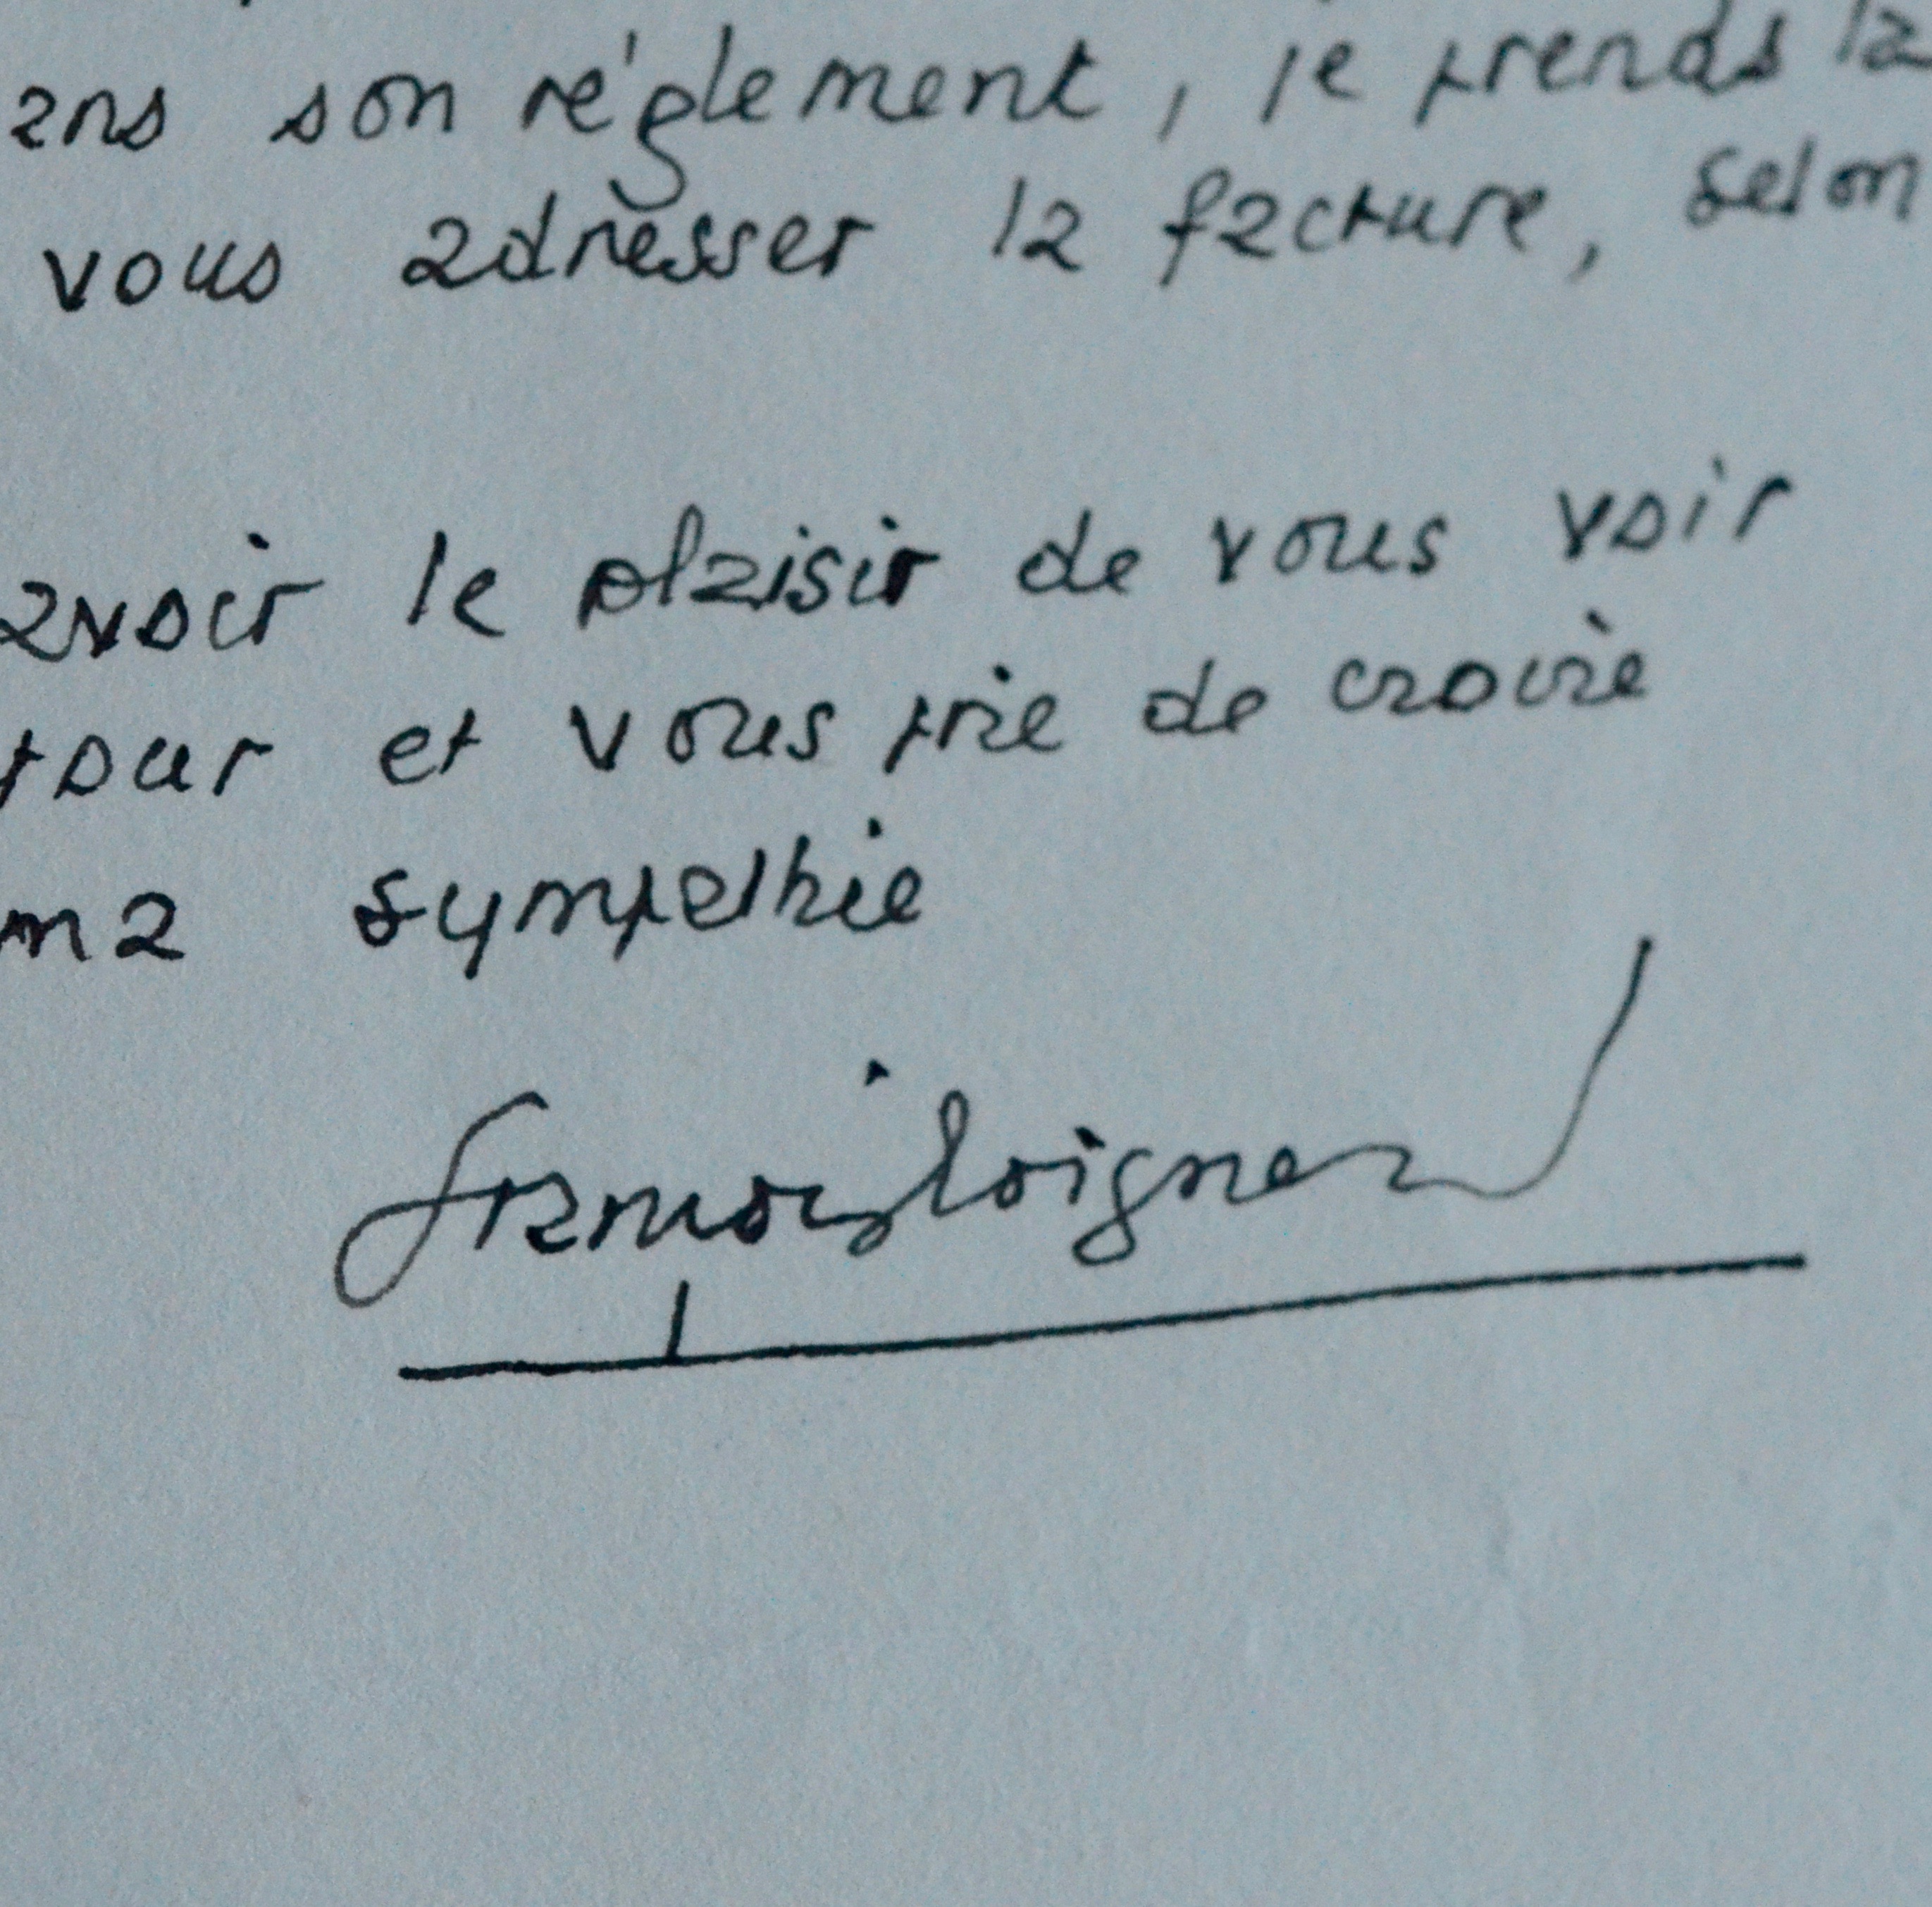 ans son réglement, je prends la
vous adresser la facture, selon
avoir le plaisir de vous voir
tour et vous prie de croire
ma sympathie